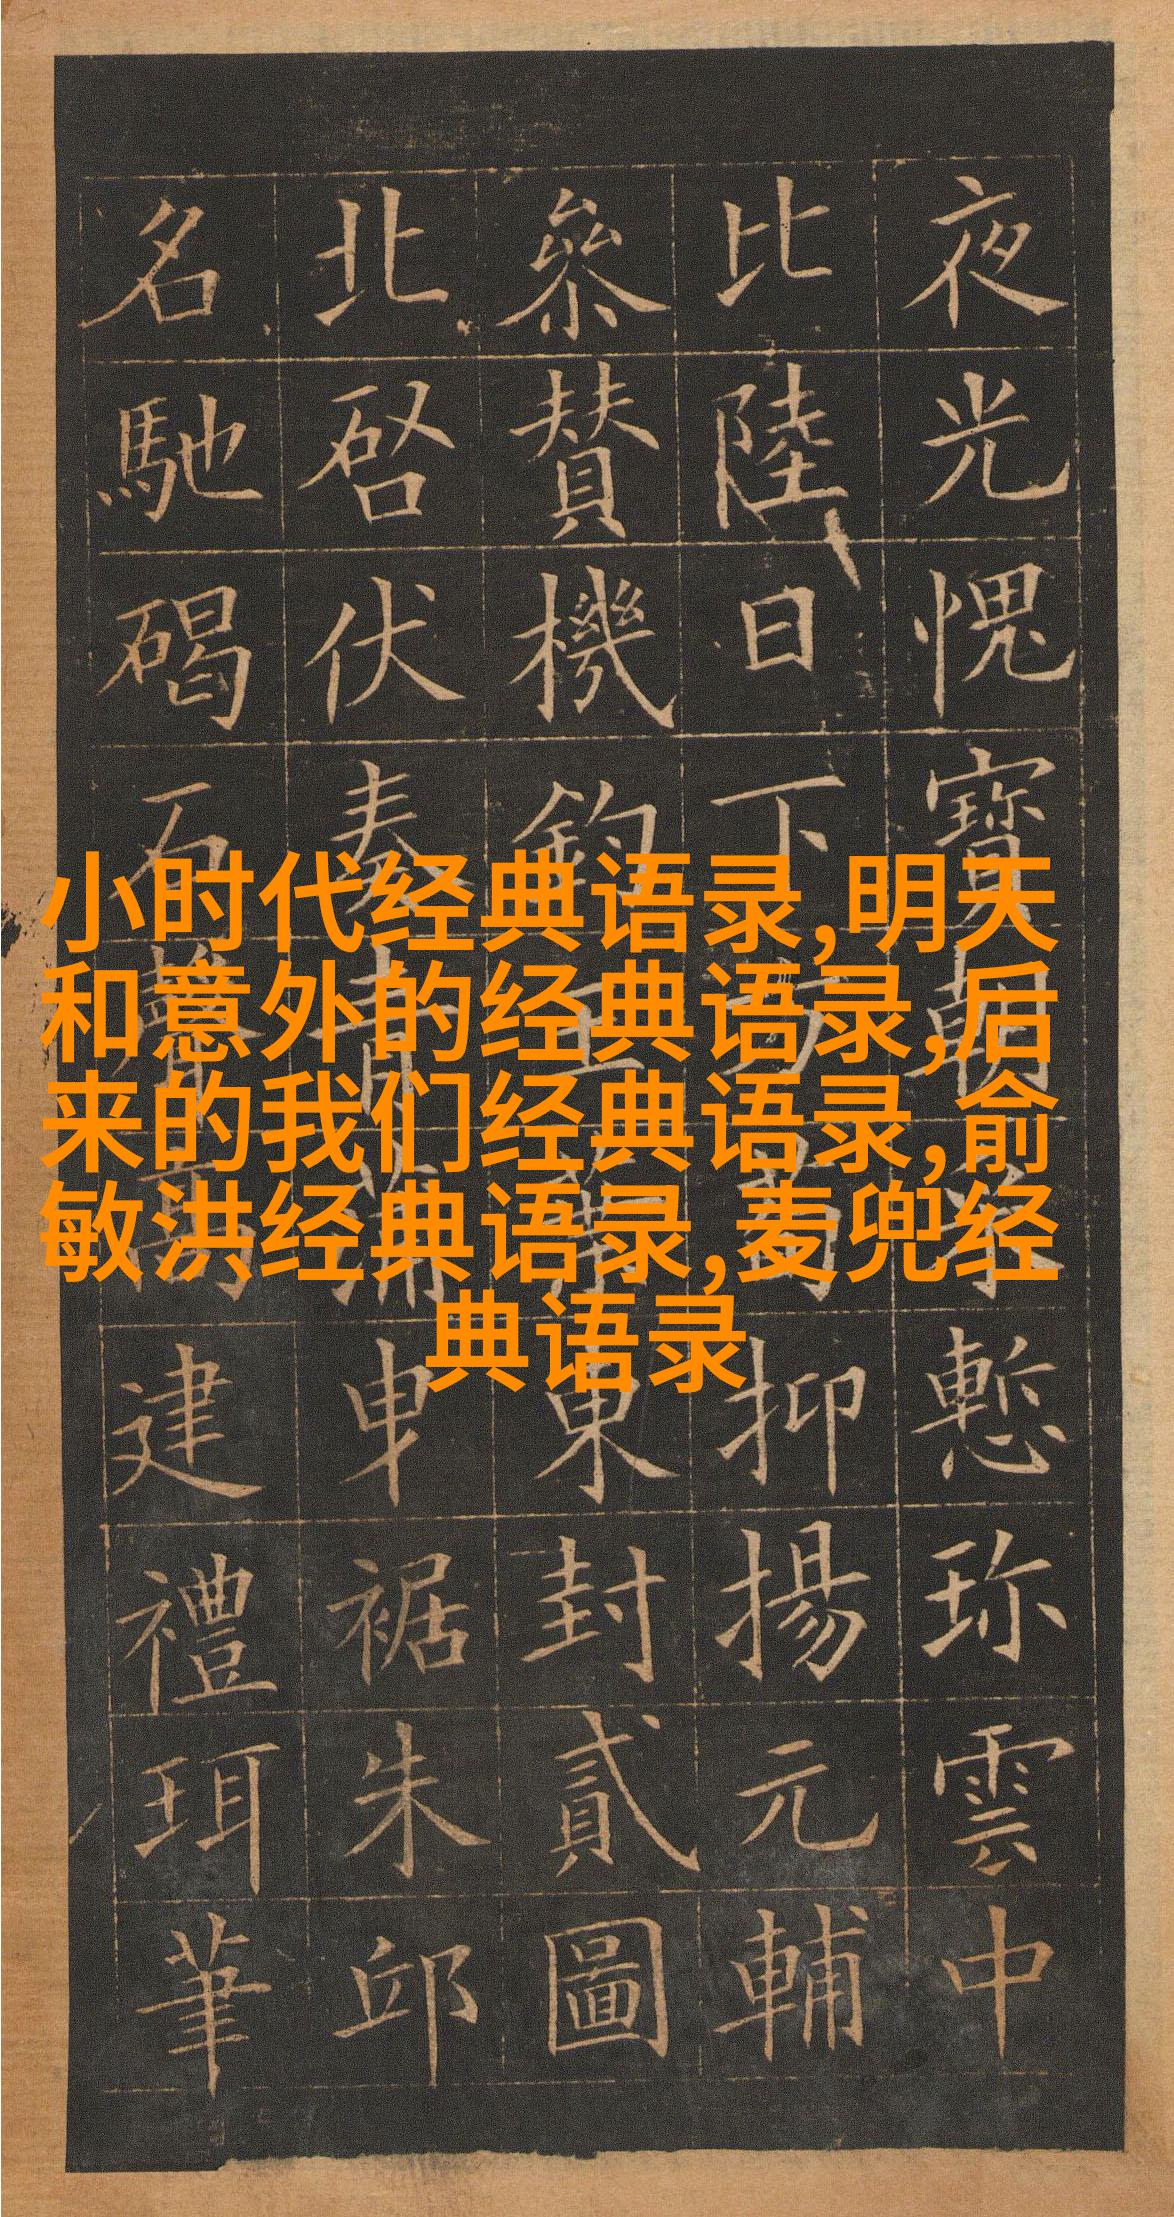 小时代经典语录,明天
和意外的经典语录,后
来的我们经典语录,俞
敏洪经典语录,麦兜经
典语录
夜光愧寶朝慙珎雲中
比陸日下方荀抑揚元輔
參賛機鈞東封貳圖
北啓伏奏青蒲曳裾朱邸
名馳碣石建禮珥筆